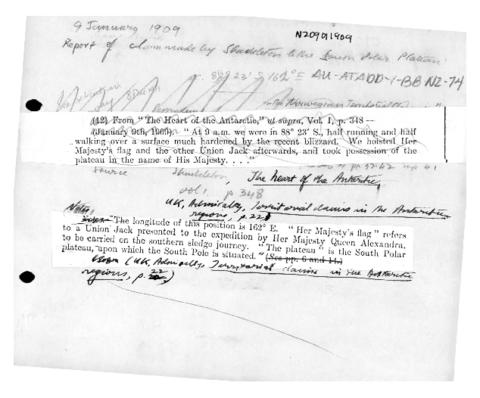 9 January 1909
N20901909
Report of claim made by Shackleton to the South Polar Plateau
88° 23' S 162° E AU-ATADD-1-BB NZ-74
(12) From "The Heart of the Antarctic," ut supra, Vol. I, p. 348—
(January 9th, 1909). "At 9 a.m. we were in 88° 23' S., half running and half
walking over a surface much hardened by the recent blizzard. We hoisted Her
Majesty's flag and the other Union Jack afterwards, and took possession of the
plateau in the name of His Majesty. . . ."
Source Shackleton, The Heart of the Antarctic,
vol 1 p. 348
UK, Admiralty, Territorial claims in the Antarctic
regions, p. 22
Notes
The longitude of this position is 162° E. "Her Majesty's flag" refers
to a Union Jack presented to the expedition by Her Majesty Queen Alexandra,
to be carried on the southern sledge journey. "The plateau" is the South Polar
plateau, "upon which the South Pole is situated." (See pp. 6 and 14.)
(UK, Admiralty, Territorial claims in the Antarctic
regions, p. 22)